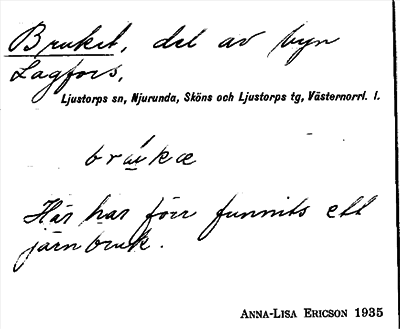 Bruket, del av byn
Lagfors,
Ljustorps sn, Njurunda, Sköns och Ljustorps tg, Västernorrl. l.
brúkæ
Här har förr funnits ett
järnbruk.
ANNA-LISA ERICSON 1935